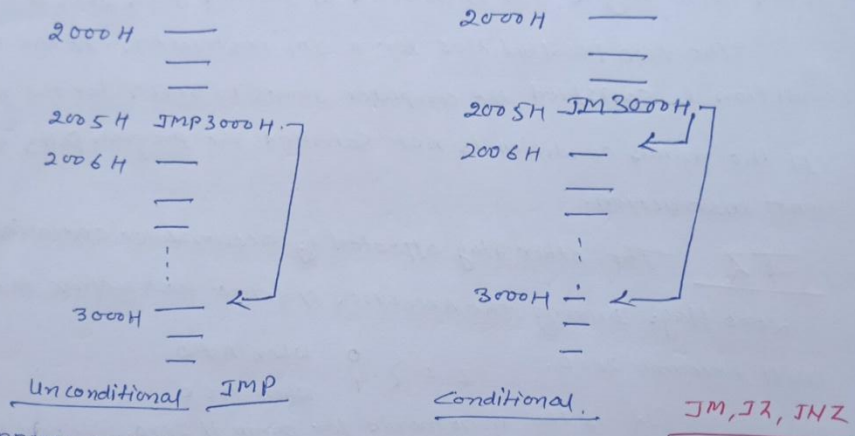 2000H
2005H JMP 3000H.
2006H
3000H
Unconditional JMP
2000H
2005H JM 3000H,
2006H
3000H
Conditional.
JM, JZ, JNZ